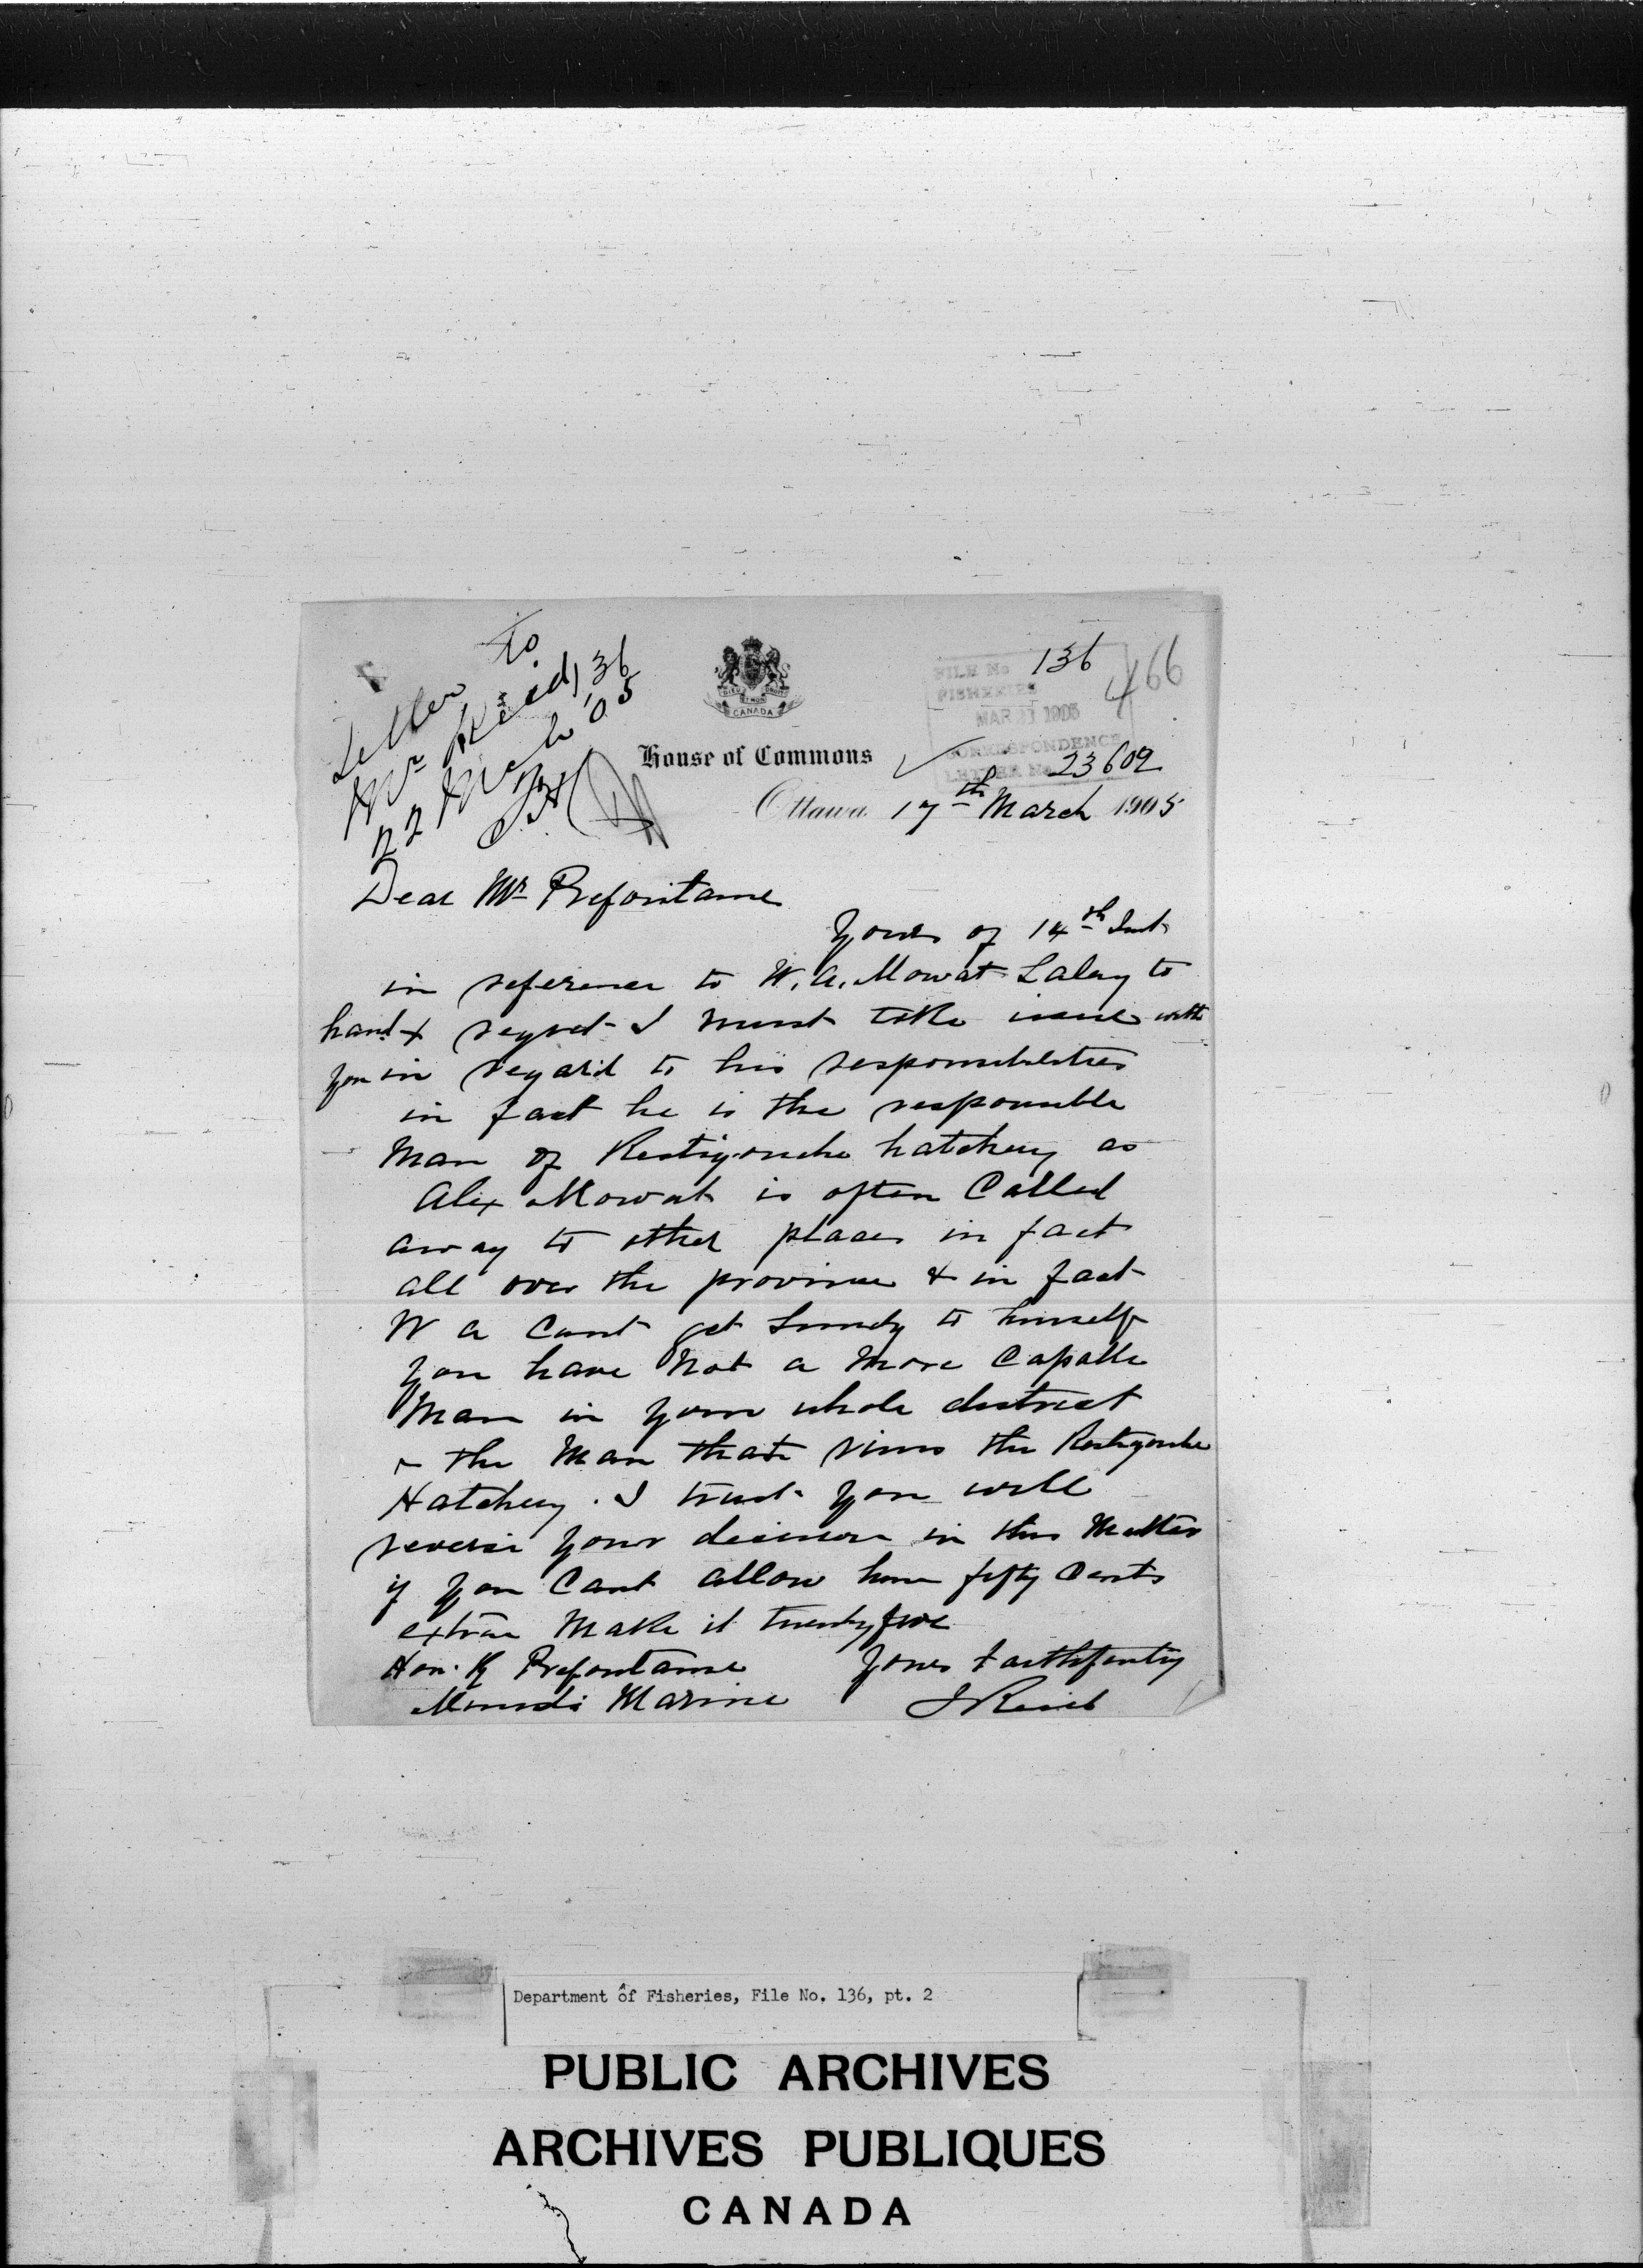 Letter to
Mr Reid, 136
22 March '05
DIEU ET MON DROIT
CANADA
House of Commons
FILE No 136
FISHERIES
466
MAR 21 1905
CORRESPONDENCE
LETTER No 23609
Ottawa 17th March 1905
Dear Mr Prefontaine
Yours of 14th Inst
in reference to W. A. Mowat Salary to
hand & regret I must take issue with
you in regard to his responsibilities
in fact he is the responsible
Man of Restigouche hatchery as
Alex Mowat is often Called
away to other places in fact
all over the province & in fact
W A Cant get Sunday to himself
you have Not a More Capable
Man in your whole district
& the Man that runs the Restigouche
Hatchery. I trust you will
reverse your decision in this Matter
if you Cant allow him fifty Cents
extra Make it twenty five
Hon. R Prefontaine Yours Faithfully
Minister Marine J Reid
Department of Fisheries, File No. 136, pt. 2
PUBLIC ARCHIVES
ARCHIVES PUBLIQUES
CANADA